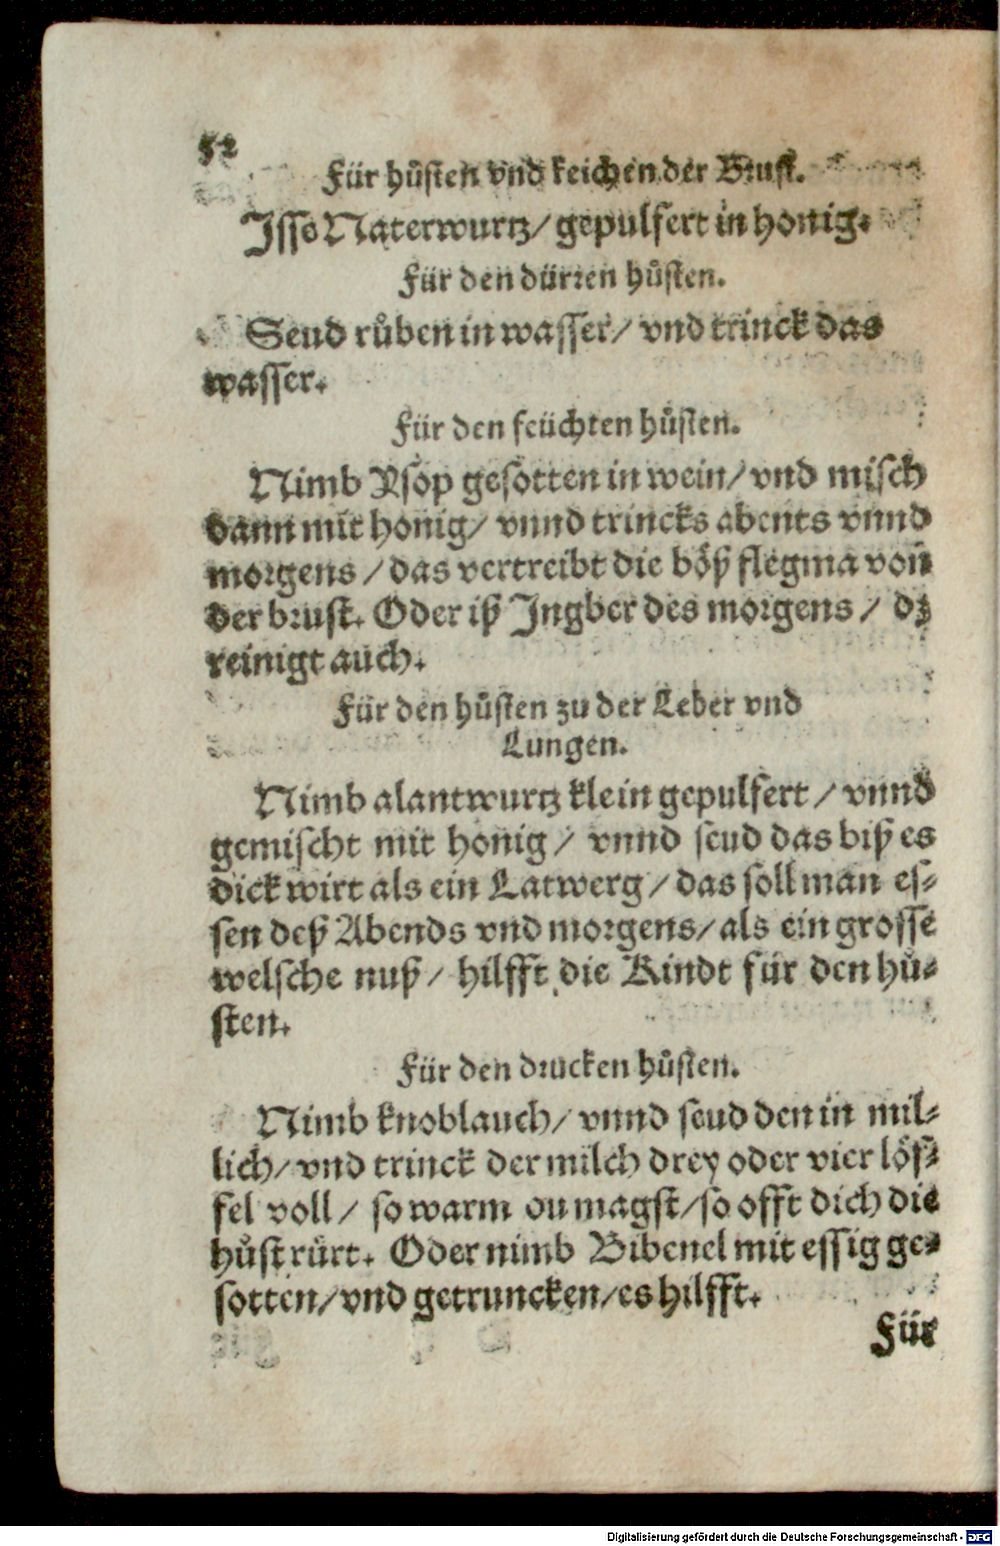 52
Für hůsten vnd keichen der Brust.
Isse Naterwurtz/ gepulfert in honig.
Für den dürren hůsten.
Seud růben in wasser/ vnd trinck das
wasser.
Für den feüchten hůsten.
Nimb Ysop gesotten in wein/ vnd misch
dann mit honig/ vnnd trincks abents vnnd
morgens / das vertreibt die böß flegma von
der brust. Oder iß Ingber des morgens / dz
reinigt auch.
Für den hůsten zu der Leber vnd
Lungen.
Nimb alantwurtz klein gepulfert / vnnd
gemischt mit honig / vnnd seud das biß es
dick wirt als ein Latwerg / das soll man es-
sen deß Abends vnd morgens/ als ein grosse
welsche nuß / hilfft die Kindt für den hů-
sten.
Für den drucken hůsten.
Nimb knoblauch/ vnnd seud den in mil-
lich/ vnd trinck der milch drey oder vier löf-
fel voll / so warm du magst/ so offt dich die
hůst rürt. Oder nimb Bibenel mit essig ge-
sotten/ vnd getruncken/ es hilfft.
Für
Digitalisierung gefördert durch die Deutsche Forschungsgemeinschaft - DFG